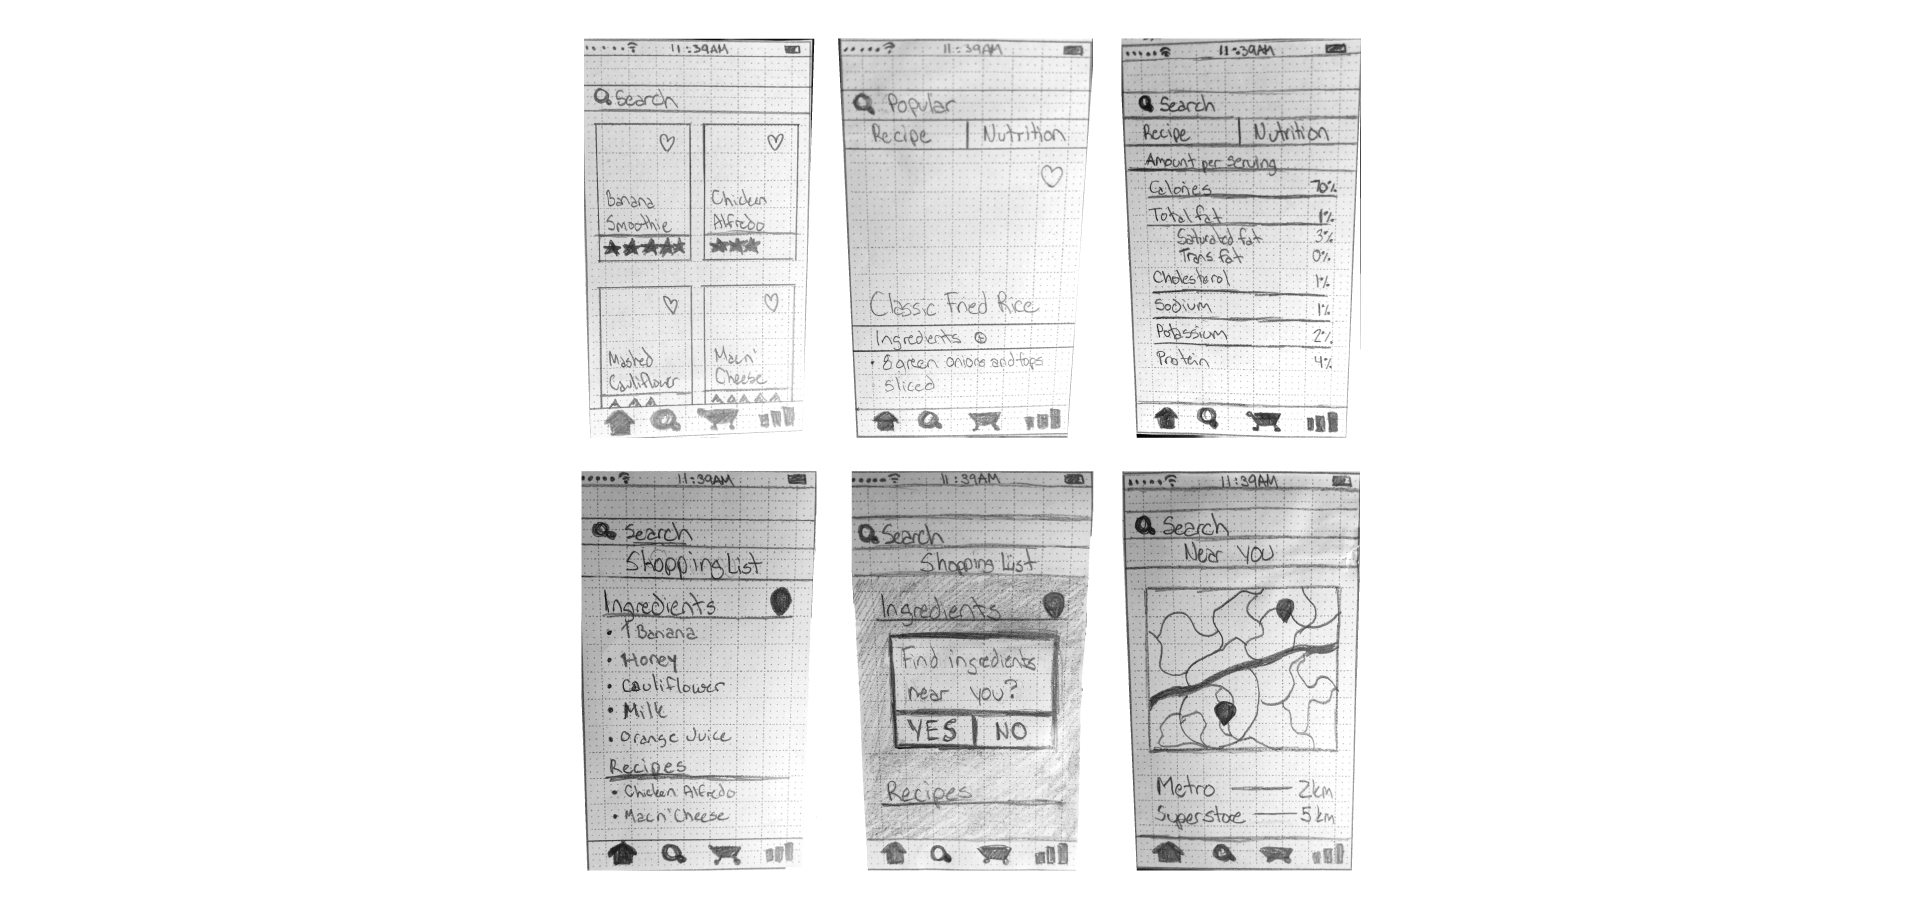 11:39AM
Search
Banana
Smoothie
Chicken
Alfredo
Mashed
Cauliflower
Macn'
Cheese
11:39AM
Popular
Recipe
Nutrition
Classic Fried Rice
Ingredients
• 8 green onions and tops
sliced
11:39AM
Search
Recipe
Nutrition
Amount per serving
Calories 70%
Total fat 1%
Saturated fat 3%
Trans fat 0%
Cholesterol 1%
Sodium 1%
Potassium 2%
Protein 4%
11:39AM
Search
Shopping List
Ingredients
• 1 Banana
• Honey
• Cauliflower
• Milk
• Orange Juice
Recipes
• Chicken Alfredo
• Macn' Cheese
11:39AM
Search
Shopping List
Ingredients
Find ingredients
near you?
YES
NO
Recipes
11:39AM
Search
Near YOU
Metro 2km
Superstore 5km